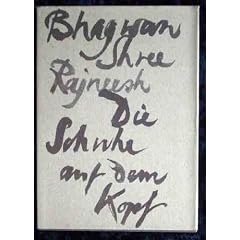 Bhagwan
Shree
Rajneesh
Die
Schuhe
auf dem
Kopf